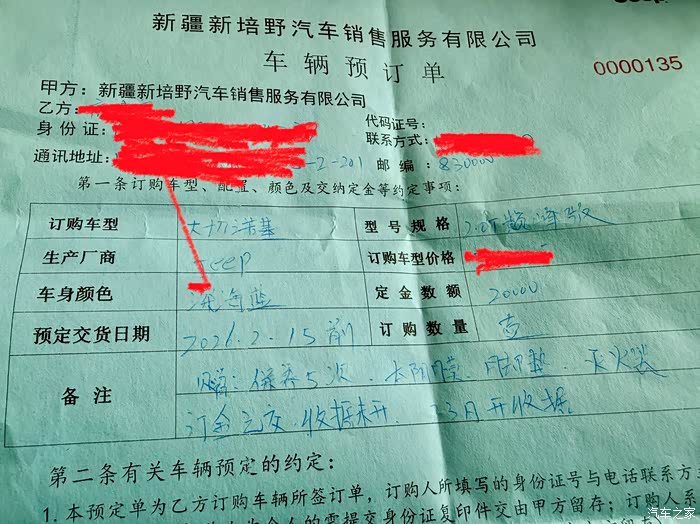 新疆新培野汽车销售服务有限公司
车辆预订单
0000135
甲方：新疆新培野汽车销售服务有限公司
乙方：
身份证： 代码证号：
联系方式：
通讯地址： -2-201 邮编：830000
第一条订购车型、配置、颜色及交纳定金等约定事项：
订购车型 大切诺基 型号规格
生产厂商 Jeep 订购车型价格
车身颜色 海蓝 定金数额 20000
预定交货日期 2021.2.15前 订购数量 壹
备注 赠：保养5次、太阳膜、脚垫、灭火器
订金已交、收据未开、 3月开收据
第二条有关车辆预定的约定：
1. 本预定单为乙方订购车辆所签订单，订购人所填写的身份证号与电话联系方
个人的需提交身份证复印件交由甲方留存；订购人系
汽车之家